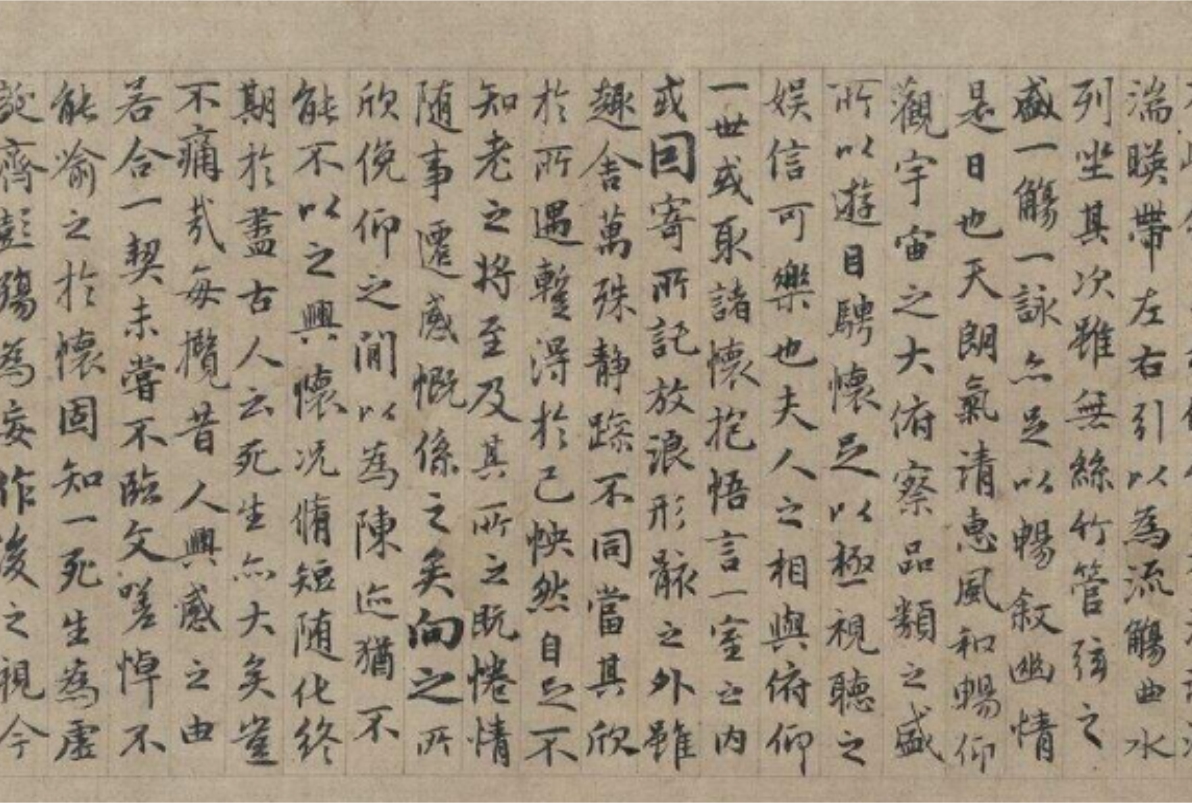 湍暎帶左右引以為流觴曲水
列坐其次雖無絲竹管弦之
盛一觴一詠亦足以暢敘幽情
是日也天朗氣清惠風和暢仰
觀宇宙之大俯察品類之盛
所以遊目騁懷足以極視聽之
娛信可樂也夫人之相與俯仰
一世或取諸懷抱悟言一室之內
或因寄所託放浪形骸之外雖
趣舍萬殊靜躁不同當其欣
於所遇蹔得於己怏然自足不
知老之將至及其所之既惓情
隨事遷感慨係之矣向之所
欣俛仰之閒以為陳迹猶不
能不以之興懷況脩短隨化終
期於盡古人云死生亦大矣豈
不痛哉每攬昔人興感之由
若合一契未嘗不臨文嗟悼不
能喻之於懷固知一死生為虛
誕齊彭殤為妄作後之視今